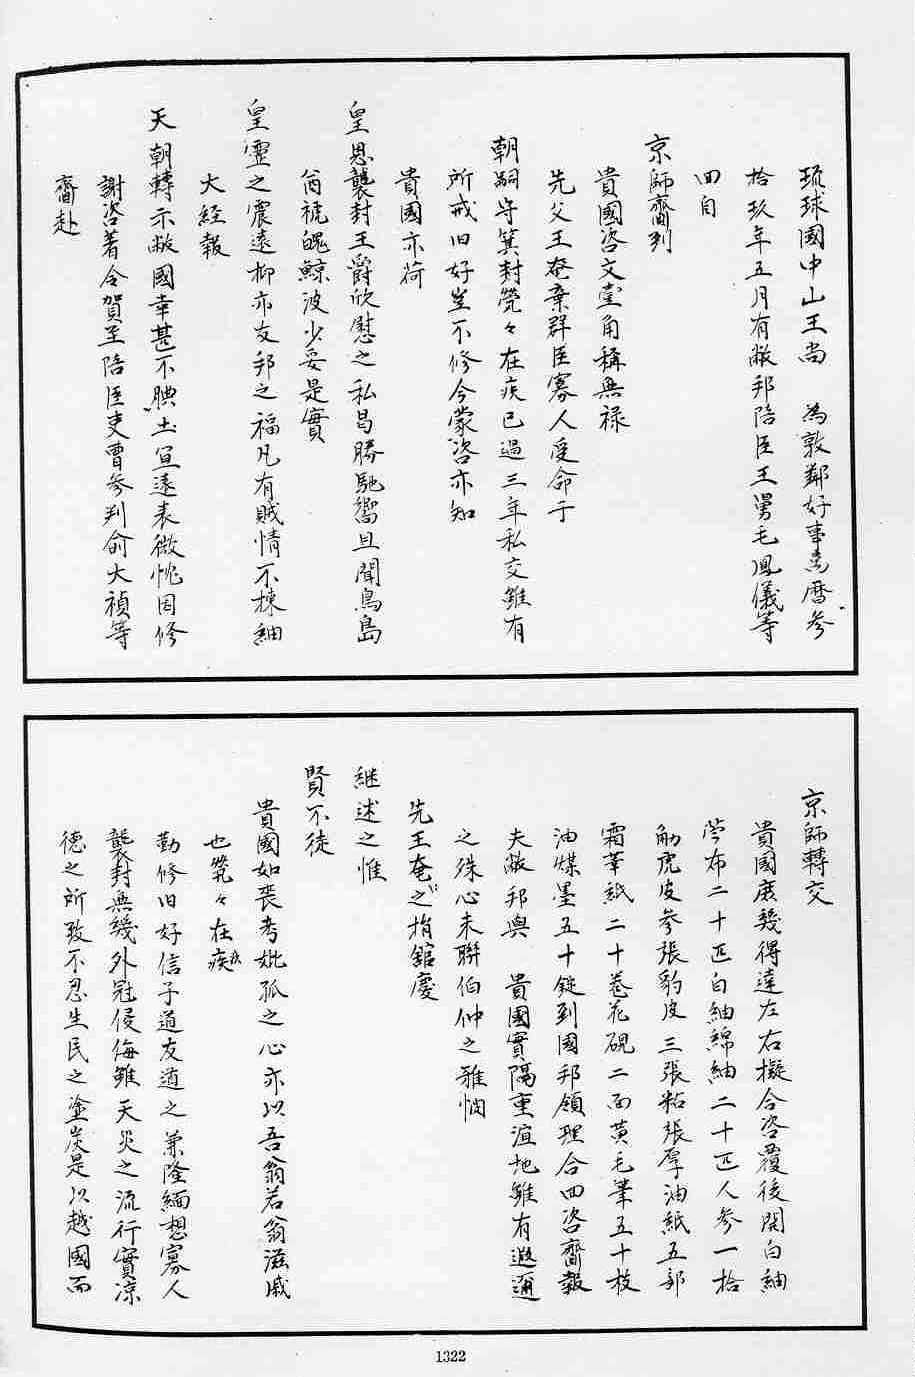 琉球國中山王尚　為敦鄰好事萬曆參
拾玖年五月有敝邦陪臣王舅毛鳳儀等
回自
京師齎到
貴國咨文壹角稱無祿
先父王奄棄群臣寡人受命于
朝嗣守箕封煢々在疚已過三年私交雖有
所戒旧好豈不修今蒙咨亦知
貴國亦荷
皇恩襲封王爵欣慰之私曷勝馳嚮且聞鳥島
酋褫魄鯨波少妥是實
皇靈之震遠抑亦友邦之福凡有賊情不揀細
大經報
天朝轉示敝國幸甚不腆土宜遠表微忱因修
謝咨著令賀至陪臣吏曹參判俞大禎等
齎赴
京師轉交
貴國庶幾得達左右擬合咨覆後開白紬
苧布二十匹白紬綿紬二十匹人參一拾
觔虎皮參張豹皮三張粘張厚油紙五部
霜華紙二十卷花硯二面黃毛筆五十枝
油煤墨五十錠到國邦領理合回咨齎報
夫敝邦與　貴國實隔重洹地雖有遐邇
之殊心未聯伯仲之雅惆
先王奄之捐館慶
継述之惟
賢不徒
貴國如喪考妣孤之心亦以吾翁若翁滋戚
也煢々在疚
勤修旧好信子道友道之兼隆緬想寡人
襲封無幾外冠侵侮雖天災之流行實凉
德之所致不忍生民之塗炭是以越國而
1322